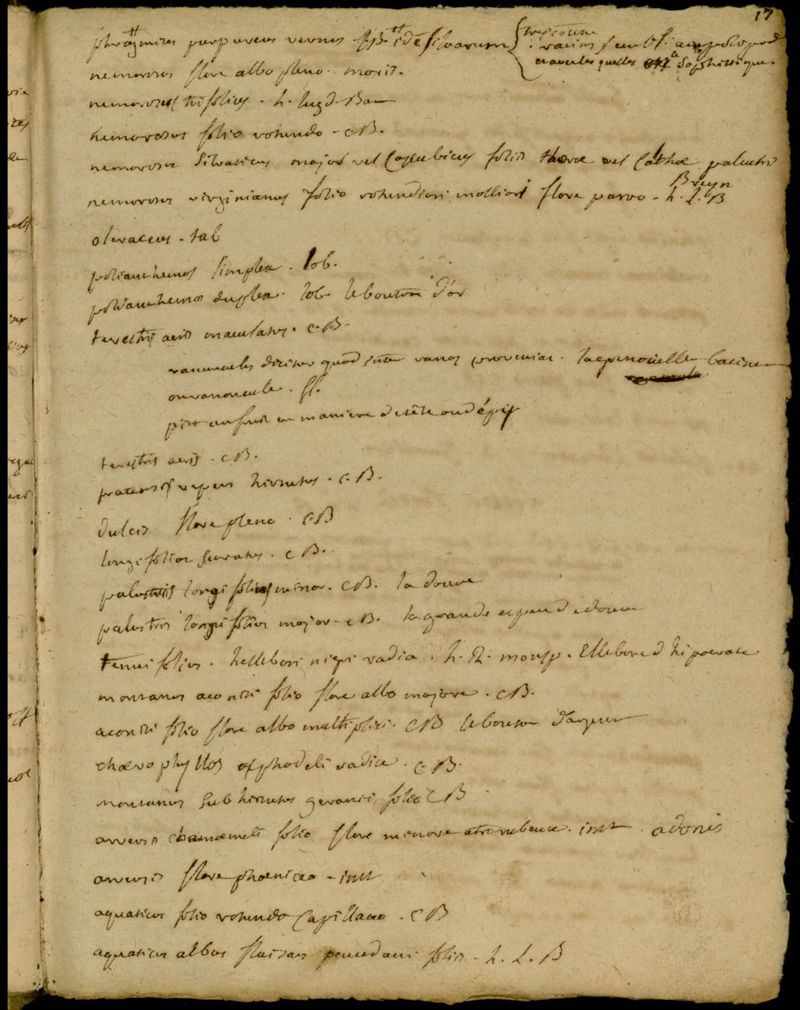 17
phragmites purpureus vernus J.B. id est silvarum
nemorosus flore albo pleno. moris.
nemorosus trifolius. h. lugd. Bat
nemorosus folio rotundo. CB.
nemorosus silvaticus major vel Cassubicus folio thorae vel Calthae palustris
Breyn
nemorosus virginianus folio rotundiori molliori flore parvo. h. L. B
olivaceus. tab
polianthemos simplex. lob.
polianthemos duplex. lob. le bouton d'or
terestris aeris maculatus. CB.
ranunculus dicitur quod inter ranas proveniat. la grenouillette bacinet
ou ranoncule. ff.
terestris aeris. CB.
pratensis repens hirsutus. CB.
dulcis flore pleno. CB
longifolius serratus. CB.
palustris longifolius minor. CB. la douve
palustris longifolius major. CB. la grande espece de douve
tenuifolius. hellebori nigri radice. h. R. monsp. Ellebore d'hipocrate
montanus aconiti folio flore albo majore. CB.
aconiti folio flore albo multiplici. CB le bouton d'argent
chaerophyllos asphodeli radice. CB.
montanus subhirsutus geranii folio CB
arvensis chamaemeli folio flore minore atrorubente. inst. adonis
arvensis flore phoeniceo. inst
aquaticus folio rotundo Capillaceo. CB
aquaticus albus fluitans peucedani folio. h. L. B